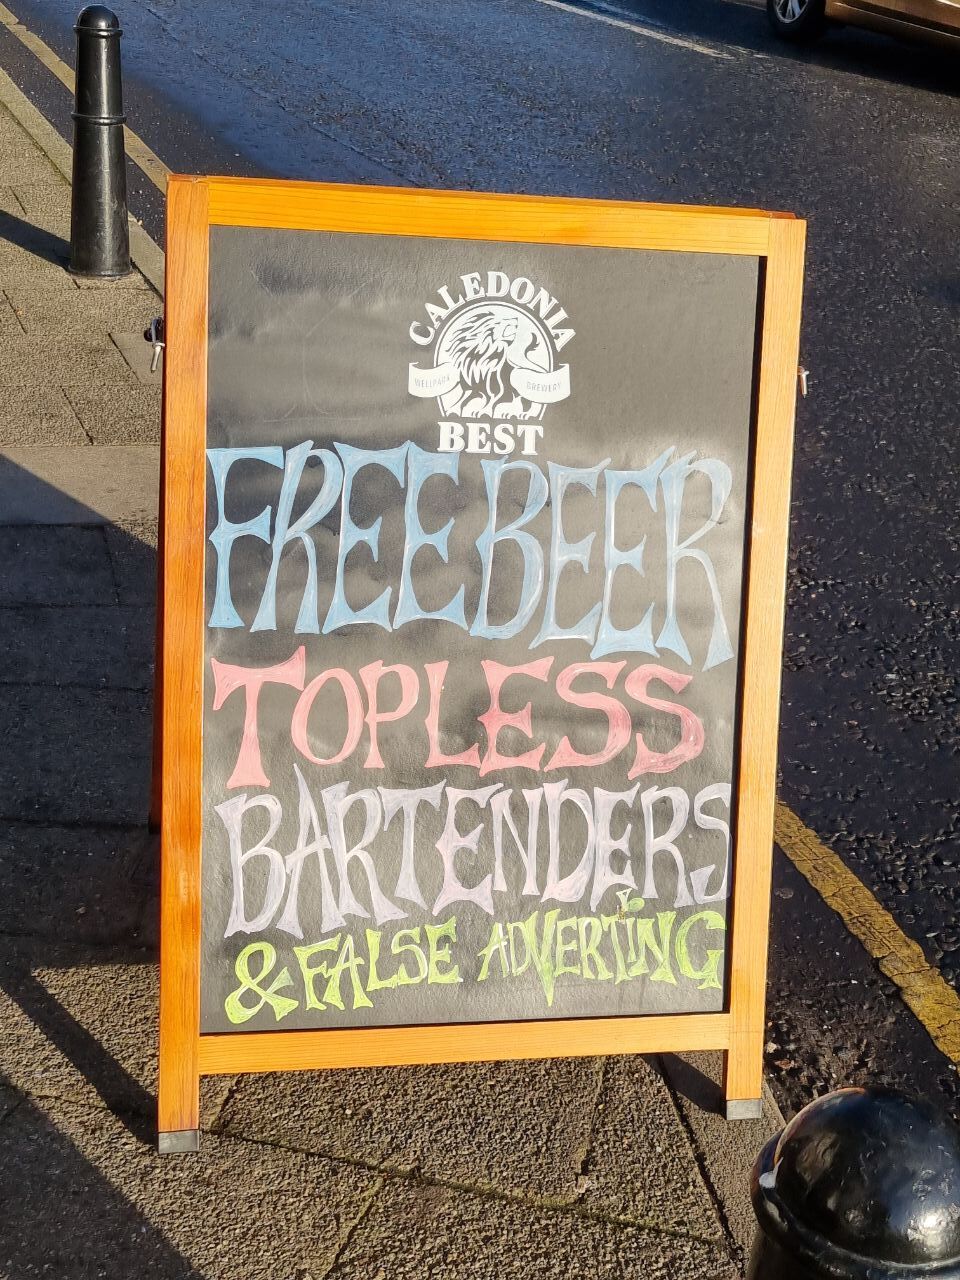 CALEDONIA
WELLPARK BREWERY
BEST
FREE BEER
TOPLESS
BARTENDERS
& FALSE ADVERTING